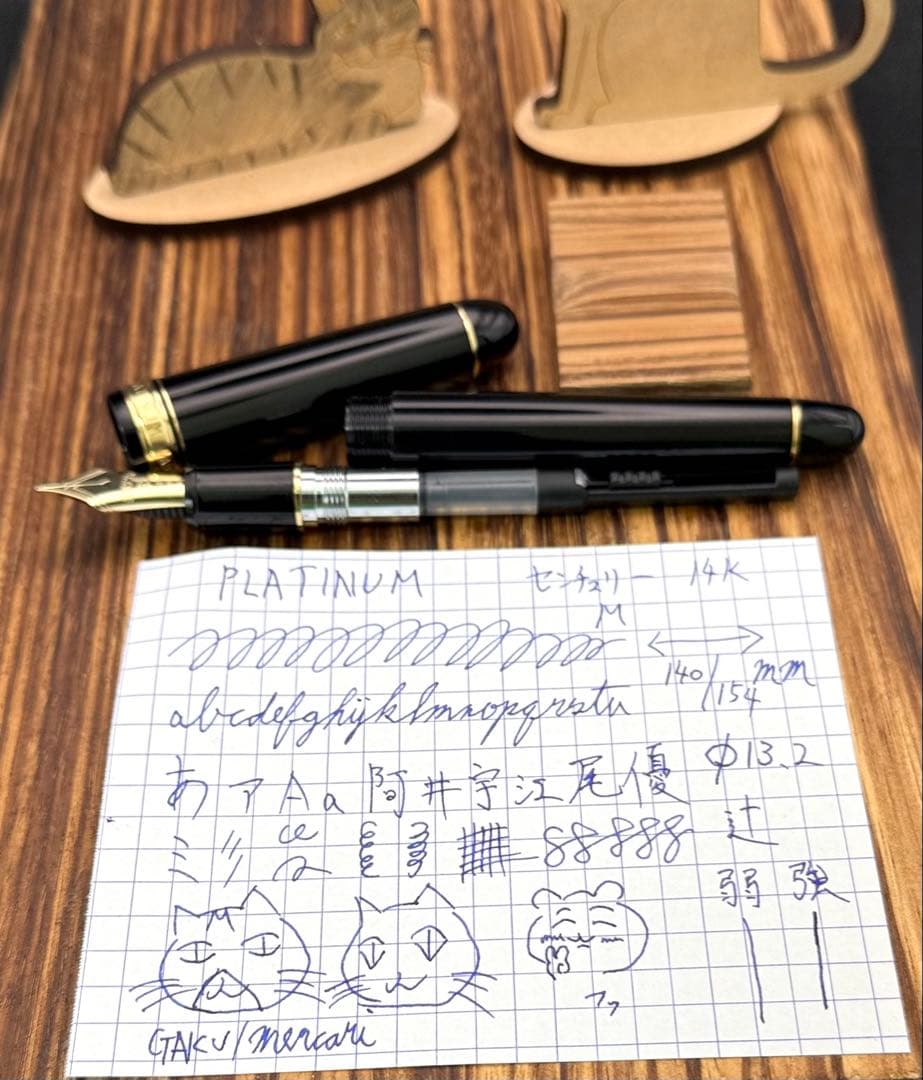 PLATINUM センチュリー 14K
M
140/154 mm
abcdefghijklmnopqrstu
φ13.2
あ ア A a 阿 井 宇 江 尾 優
辻
88888
弱 強
GAKU/mercari